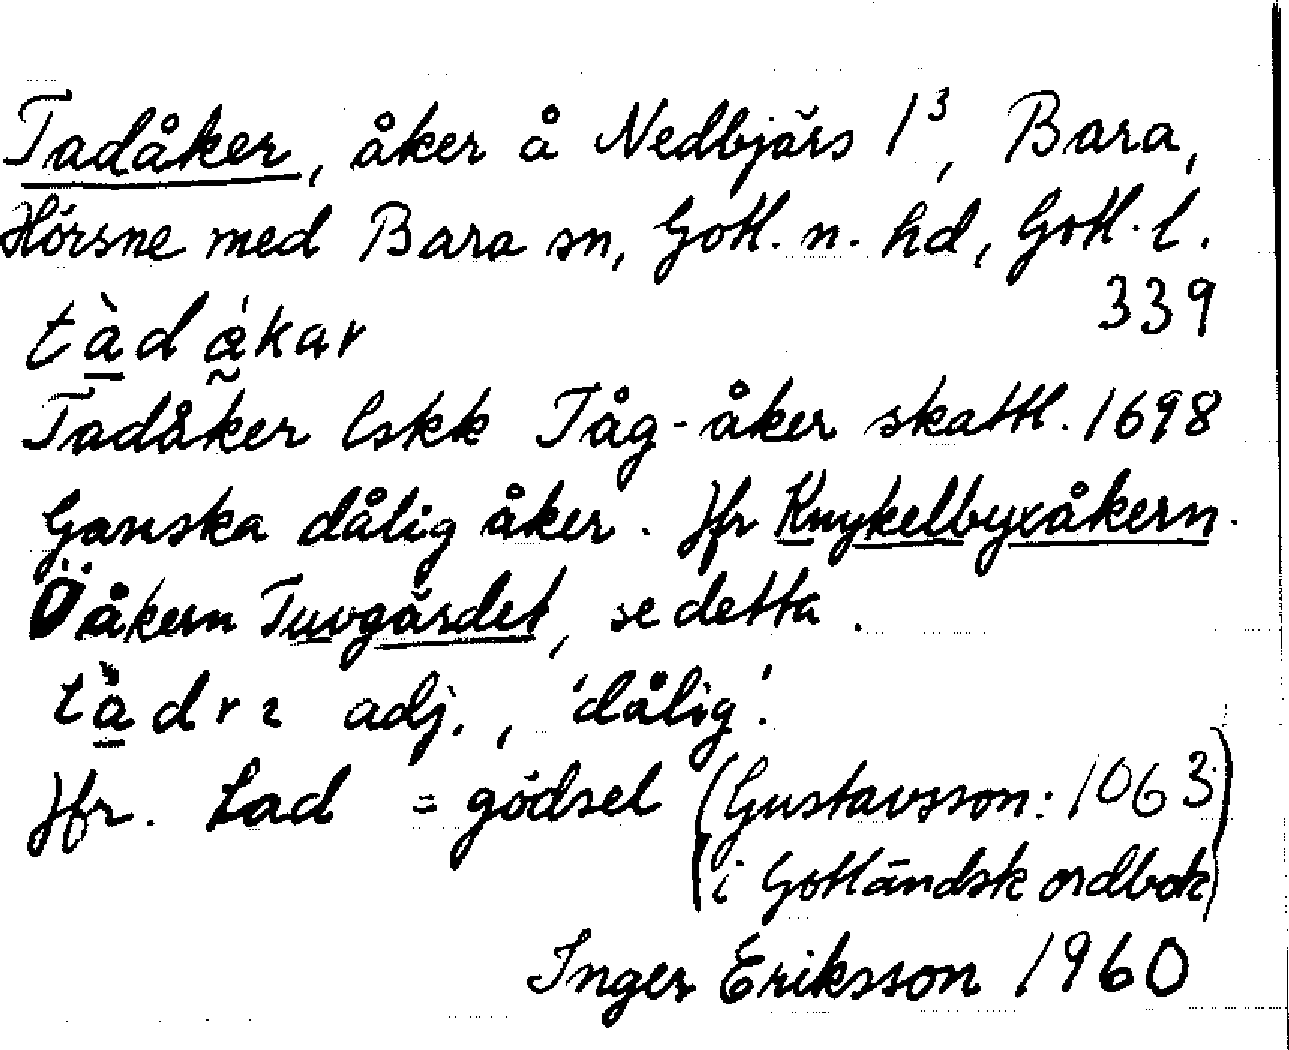 Tadåker, åker å Nedbjärs 1³, Bara,
Hörsne med Bara sn, Gotl. n. hd, Gotl. l.
339
tàdákar
Tadåker lskk Tåg-åker skattl. 1698
Ganska dålig åker. Jfr Knykelbyxåkern.
Ö åkern Tuvgärdet, se detta.
tàdrɿ adj., 'dålig'.
Jfr. tad = gödsel (Gustavsson: 1063)
(i Gotländsk ordbok)
Inger Eriksson 1960